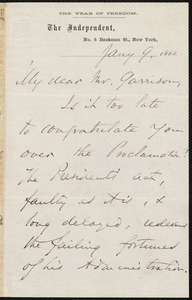 THE YEAR OF FREEDOM.
The Independent,
No. 5 Beekman St., New York,
Jany 9. 1863
My dear Mr. Garrison,
Is it too late
to congratulate you
over the Proclamation?
The President's act,
faulty as it is, &
long delayed, redeems
the failing fortunes
of his Administration.